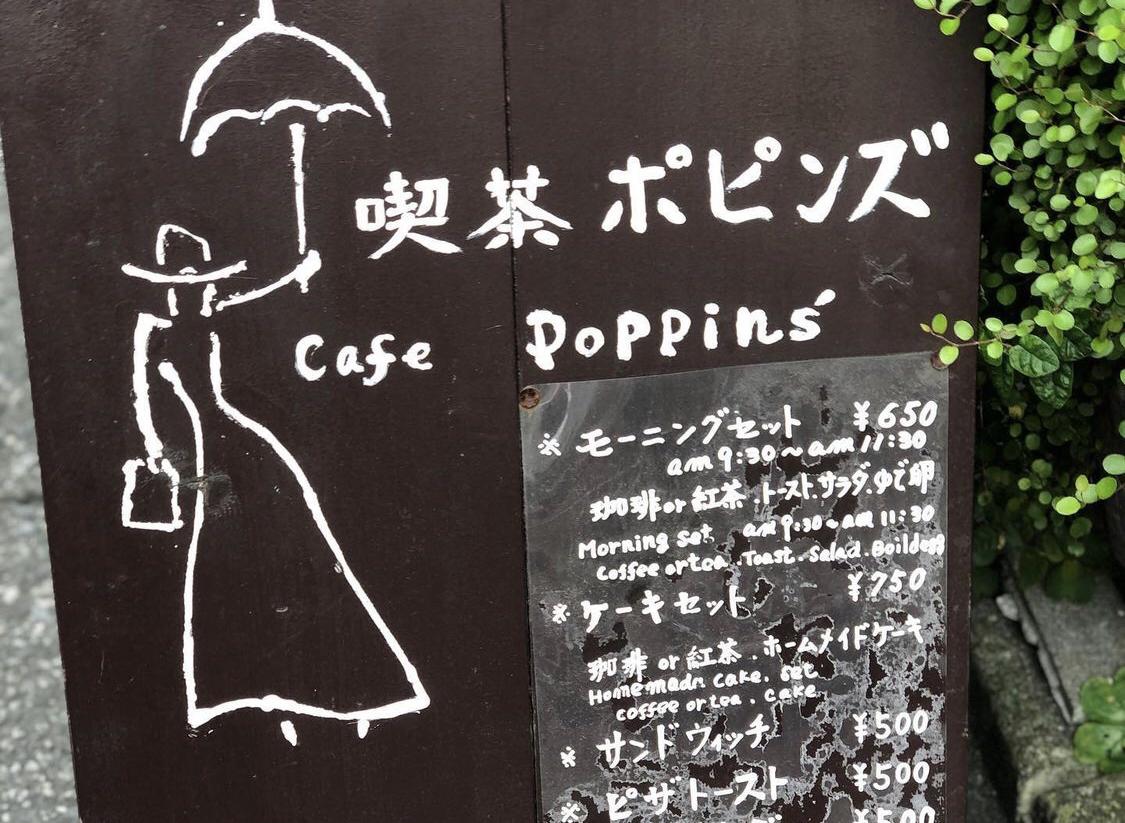 喫茶 ポピンズ
Cafe Poppins'
※ モーニングセット ¥650
am 9:30～am 11:30
珈琲 or 紅茶.トースト.サラダ.ゆで卵
Morning set am 9:30～am 11:30
coffee or tea.Toast.Salad.Boildegg
※ ケーキセット ¥750
珈琲 or 紅茶.ホームメイドケーキ
Homemade cake. set
coffee or tea. cake
※ サンドウィッチ ¥500
※ ピザトースト ¥500
¥500